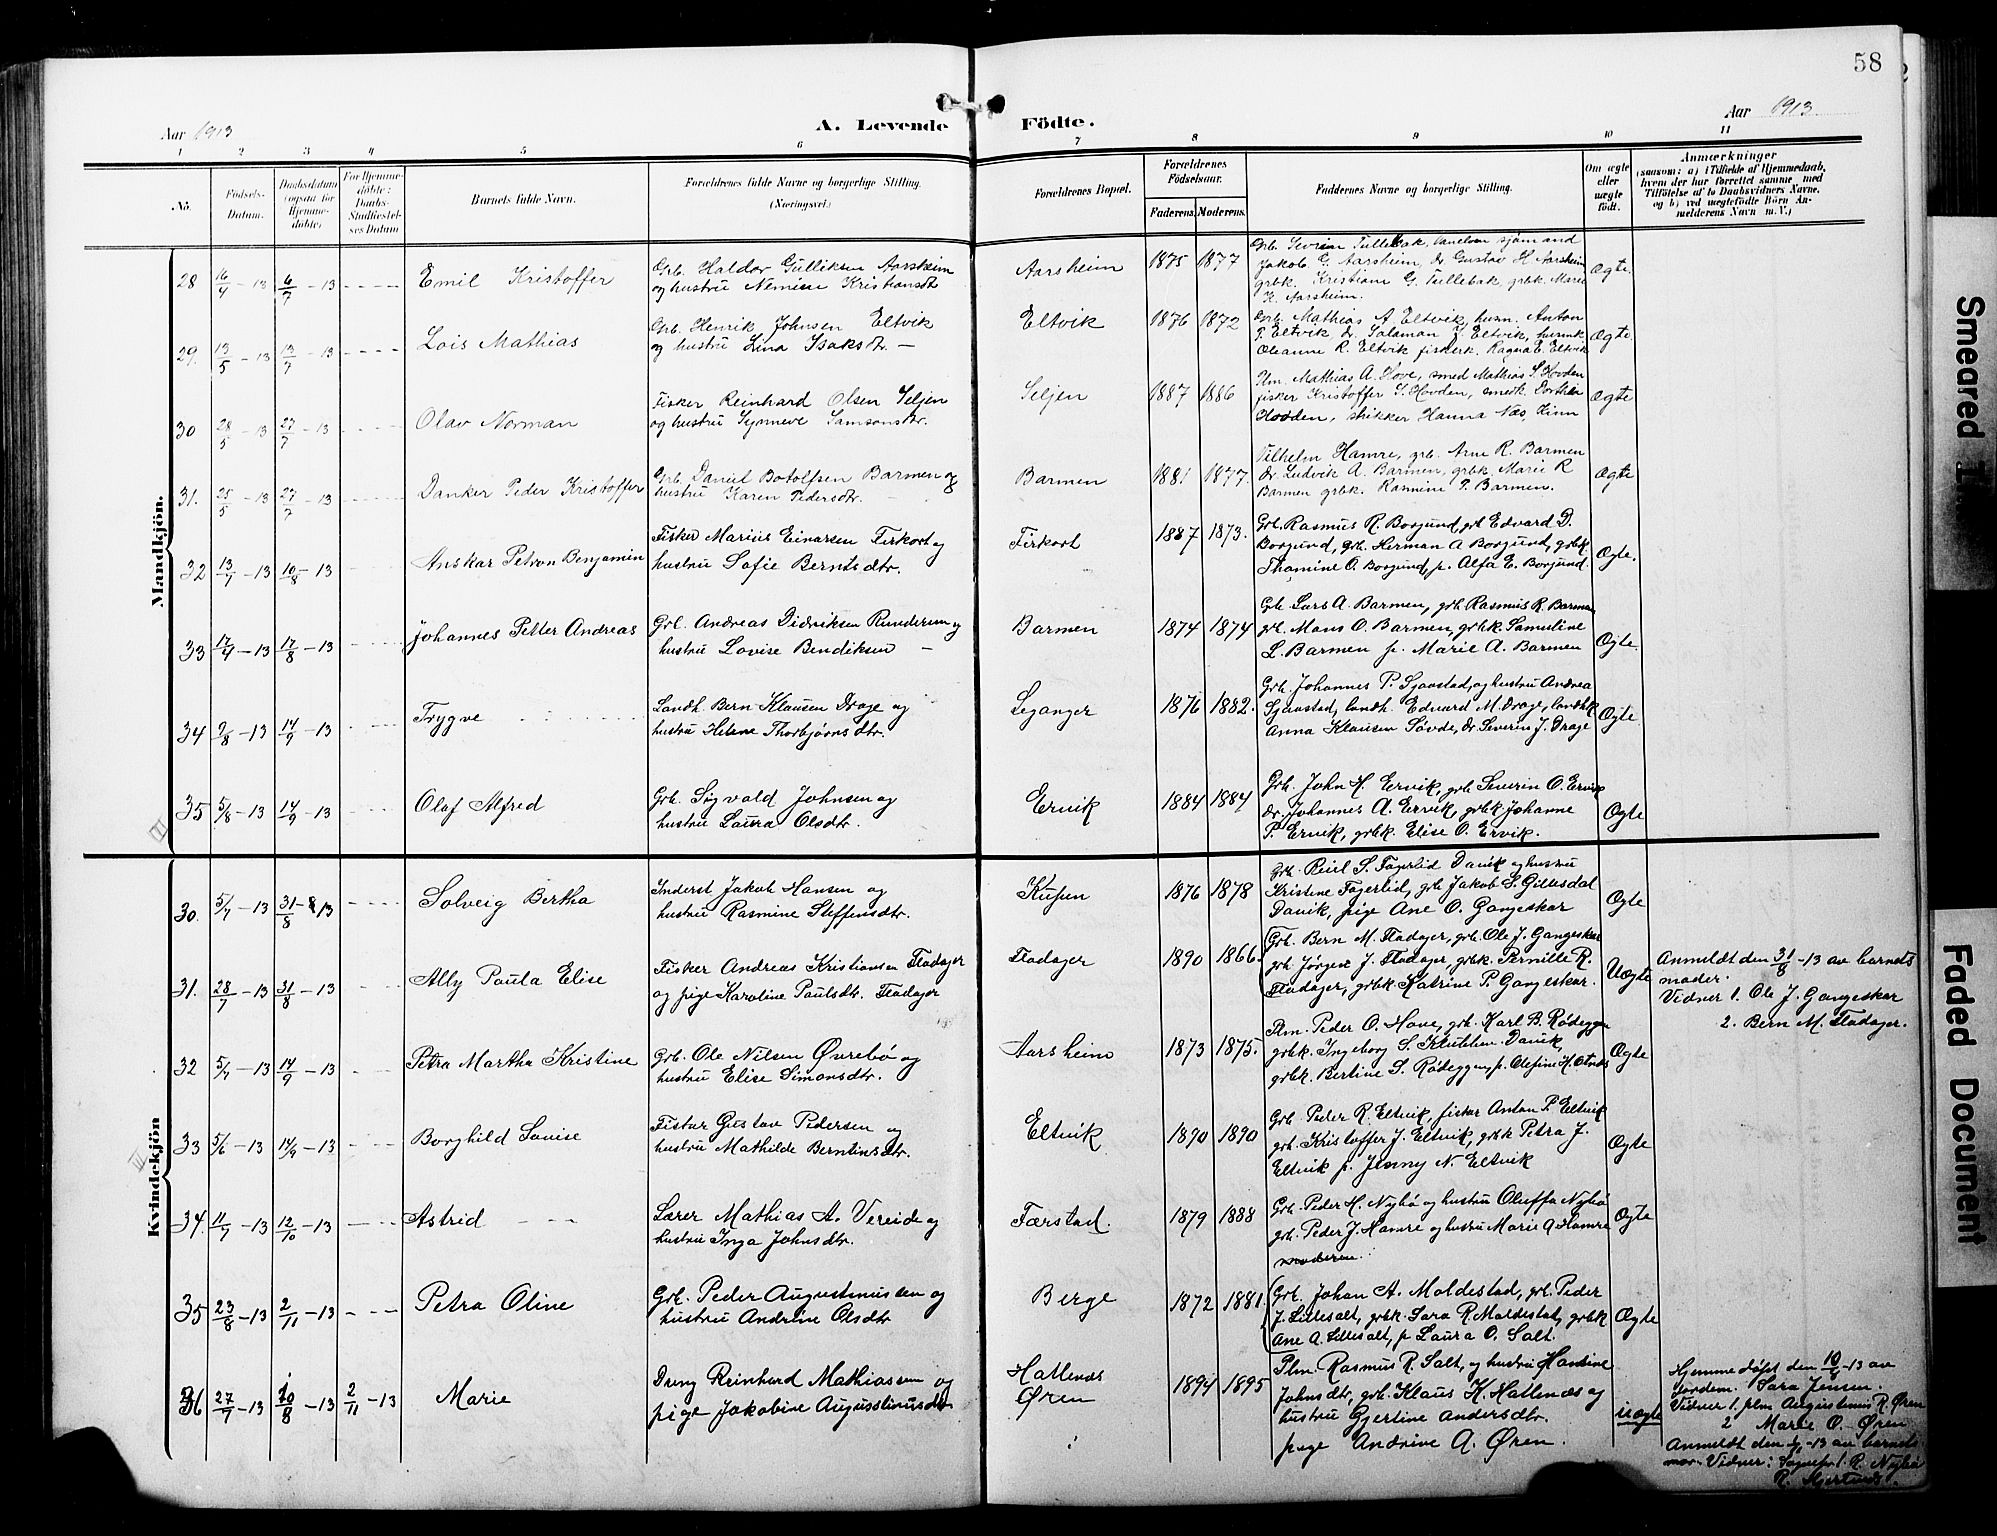 58
Aar 1913
A. Levende Födte.
Aar 1913
1 2 3 4 5 6 7 8 9 10 11
No.
Födsels-Datum.
Daabsdatum (ogsaa for Hjemmedöbte.)
For Hjemmedöbte: Daabs-Stadfæstelses Datum
Barnets fulde Navn.
Forældrenes fulde Navne og borgerlige Stilling.
(Næringsvei.)
Forældrenes Bopæl.
Forældrenes Födselsaar.
Faderens. Moderens.
Faddernes Navne og borgerlige Stilling.
Om ægte eller uægte födt.
Anmærkninger
(saasom: a) i Tilfælde af Hjemmedaab, hvem der har forrettet samme med Tilföielse af to Daabsvidners Navne, og b) ved uægtefödte Börn Anmelderens Navn m. V.)
Mandkjön.
28 16/4 - 13 6/7 - 13 Emil Kristoffer
Grb. Haldor Gulliksen Aarsheim
og hustru Nemine Kristiansdtr
Aarsheim 1875 1877
Jakob G. Aarsheim, dr Gustav H. Aarsheim
grbk. Kristiane G. Tullebak, grbk. Marie
K. Aarsheim.
Ægte
29. 13/5 - 13 13/7 - 13 Lois Mathias
Grb. Henrik Johnsen Eltvik
og hustru Lina Isaksdtr. -
Eltvik 1876 1872
Grb. Mathias A. Eltvik, husm. Anton
P. Eltvik dr. Salaman J. Eltvik, husmk
Oleanne R. Eltvik fiskerk. Ragna E. Eltvik
Ægte
30 28/5 - 13 27/7 - 13 Olav Norman
Fisker Reinhard Olsen Seljen
og hustru Synneve Samsonsdtr.
Seljen 1887 1886
Plm. Mathias A. Hove, smed Mathias S. Hovden
fisker Kristoffer S. Hovden, smedk. Dorthea
Hovden, strikker Hanna Næs,
Ægte
31. 25/5 - 13 27/7 - 13 Danker Peder Kristoffer
Grb. Daniel Botolfsen Barmen og
hustru Karen Pedersdtr.
Barmen 1881 1877
Vilhelm Hamre, grb. Arne R. Barmen
dr. Ludvik A. Barmen, grbk. Marie R
Barmen grbk. Rasmine P. Barmen.
Ægte
32 13/7 - 13 10/8 - 13 Anskar Petron Benjamin
Fisker Marius Einarsen Firkort og
hustru Sofie Berntsdtr.
Firkort 1887 1873.
Grb. Rasmus R. Borgund, grb Edvard D.
Borgund, grb. Herman A Borgund, grbk
Thomine O. Borgund, p. Alfa E. Borgund.
Ægte.
33 17/4 - 13 17/8 - 13 Johannes Petter Andreas
Grb. Andreas Didriksen Runderum og
hustru Lovise Bendiksen -
Barmen 1874 1874
Grb. Lars A. Barmen, grb. Rasmus R. Barmen
grb. Mons O. Barmen, grbk. Samuline
L. Barmen p. Marie A. Barmen
Ægte.
34 2/8 - 13 14/9 - 13 Trygve
Landh. Bern Klausen Drage og
hustru Helene Thorbjørnsdtr.
Leganger 1876 1882.
Grb. Johannes P. Sjaastad, og hustru Andrea
Sjaastad, landh. Edvard M. Drage, landhk
Anna Klausen Søvde, dr. Severin J. Drage
Ægte
35 5/8 - 13 14/9 - 13 Olaf Alfred
Grb. Sigvald Johnsen og
hustru Laura Olsdtr.
Ervik 1884 1884
Grb. John H. Ervik, grb Severin O. Ervik
dr. Johannes A. Ervik, grbk. Johanne
P. Ervik, grbk. Elise O. Ervik.
Ægte
Kvindekjön
30. 5/7 - 13 31/8 - 13 Solveig Bertha
Inderst Jakob Hansen og
hustru Rasmine Steffensdtr.
1876 1878
S. Fagerlid Davik og hustru
Kristine Fagerlid, grb Jakob S. Gillesdal
Davik, pige Ane O. Gangeskar
Ægte
31. 28/7 - 13 31/8 - 13 Ally Paula Elise
Fisker Andreas Kristiansen Fladager
og pige Karoline Paulsdtr. Fladager
Fladager 1890 1866.
Grb. Bern M. Fladager, grb. Ole J. Gangeskar
grb. Jørgen J. Fladager, grbk. Pernille R.
Fladager, grbk. Katrine P. Gangeskar.
Uægte
Anmeldt den 31/8 - 13 av barnets
moder.
Vidner 1. Ole J. Gangeskar
2. Bern M. Fladager.
32 5/7 - 13 14/9 - 13 Petra Martha Kristine
Grb. Ole Nilsen Øvrebø og
hustru Elise Simonsdtr.
Aarsheim 1873 1875.
Plm. Peder O. Hove, grb. Karl B. Rødeggen
grbk. Ingeborg S. Davik,
grbk. Bertine S. Rødeggen, p. Olefine H. Otnes
Ægte
33 5/6 - 13 14/9 - 13 Borghild Lovise
Fisker Gustav Pedersen og
hustru Mathilde Berntinsdtr.
Eltvik 1890 1890
Grb. Peder R. Eltvik, fisker Anton P. Eltvik
grb. Kristoffer J. Eltvik, grbk Petra J.
Eltvik p. Jenny N. Eltvik
Ægte
34. 11/7 - 13 12/10 - 13 Astrid
Lærer Mathias A. Vereide og
hustru Inga Johnsdtr.
Færstad. 1879 1888
Grb. Peder H. Nybø og hustru Oluffa Nybø
grb. Peder J. Hamre og hustru Marie A. Hamre
moderen.
Ægte
35 23/8 - 13 2/11 - 13 Petra Oline
Grb. Peder Augustinussen og
hustru Andrine Olsdtr
Berge 1872 1881.
Grb. Johan A. Moldestad, grb. Peder
J. Lillesalt, grbk. Sara R. Moldestad, grbk
Ane A. Lillesalt, p Laura O. Salt.
Ægte
36 27/7 - 13 10/8 - 13 2/11 - 13 Marie
Dreng Reinhard Mathiassen og
pige Jakobine Augustinusdtr
Hatlenæs
Øren 1894 1895
Plm. Rasmus R. Salt, og hustru Hansine
Johnsdtr, grb. Klaus K. Hatlenæs og
hustru Gjertine Andersdtr.
pige Andrine A. Øren.
uægte
Hjemmedøpt den 10/8 - 13 av
jordem. Sara Jensen.
Vidner 1. plm Augustinus R. Øren
2 Marie O. Øren
Anmeldt den - 13 av barnets
mor. Vidner: R. Nybø
Smeared
Faded Document